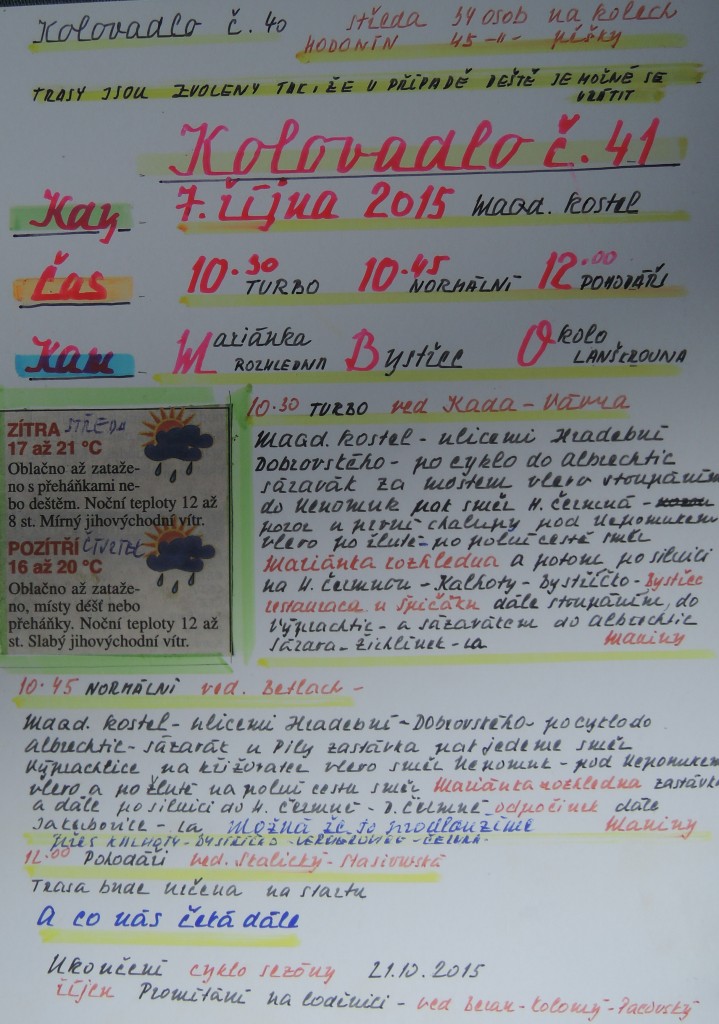 Kolovadlo č. 40 středa 34 osob na kolech
HODONÍN 45 -11- pěšky
TRASY JSOU ZVOLENY TAK, ŽE V PŘÍPADĚ DEŠTĚ JE MOŽNÉ SE
VRÁTIT
Kolovadlo č. 41
Kdy - 7. října 2015 Maad. kostel
Čas - 10.30 TURBO 10.45 NORMÁLNÍ 12.00 POHODÁŘI
Kam - Mariánka ROZHLEDNA Bystřec Okolo LANŠKROUNA
ZÍTRA STŘEDA
17 až 21 °C
Oblačno až zataže-
no s přeháňkami ne-
bo deštěm. Noční teploty 12 až
8 st. Mírný jihovýchodní vítr.
POZÍTŘÍ ČTVRTEK
16 až 20 °C
Oblačno až zataže-
no, místy déšť nebo
přeháňky. Noční teploty 12 až
st. Slabý jihovýchodní vítr.
10.30 TURBO ved Kada - Vávra
Maad. kostel - ulicemi Hradební
Dobrovského - po cyklo do Albrechtic
sázavák za mostem vlevo stoupáním
do Nepomuk pak směr H. Čermná -
pozor u první chalupy pod Nepomukem
vlevo po žluté - po polní cestě směr
Mariánka rozhledna a potom po silnici
na H. Čermnou - Kalhoty - Bystříčko - Bystřec
restaurace u Špičáku dále stoupáním, do
Výprachtic - a sázavákem do Albrechtic
Sázava - Žichlínek - La Maniny
10.45 NORMÁLNÍ ved. Betlach -
Maad. kostel - ulicemi Hradební - Dobrovského - po cyklo do
Albrechtic - sázavák u Pily zastávka pak jedeme směr
Výprachtice na křižovatce vlevo směr Nepomuk - pod Nepomukem
vlevo a po žluté na polní cestu směr Mariánka rozhledna zastávka
a dále po silnici do H. Čermné - D. Čermné odpočinek dále
Jakubovice - La Možná že to prodloužíme Maniny
přes KALHOTY - BYSTŘÍČKO - VERMĚŘOVICE - ČERMNÁ
12.00 Pohodáři ved. Skalický -
Trasa bude určena na startu
A co nás čeká dále
Ukončení cyklo sezóny 21.10. 2015
říjen Promítání na loděnici - ved Beran - Kolomý - Pacovský